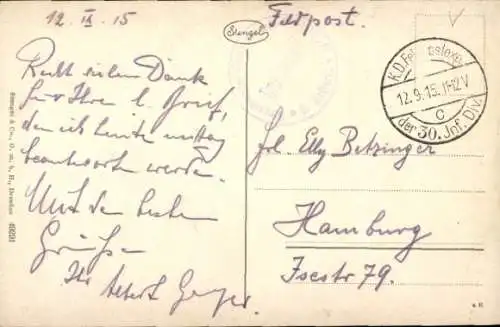 12. IX. 15
Recht vielen Dank
für Ihren l. Brief,
den ich heute mittag
beantworten werde.
Mit den besten
Grüßen
Ihr
Stengel
Feldpost.
K.D. Feldpostexp.
12.9.15.
c
der 30. Inf. Div.
Frl. Elly Betzinger
Hamburg
Isestr 79.
Stengel & Co., G. m. b. H., Dresden 49291